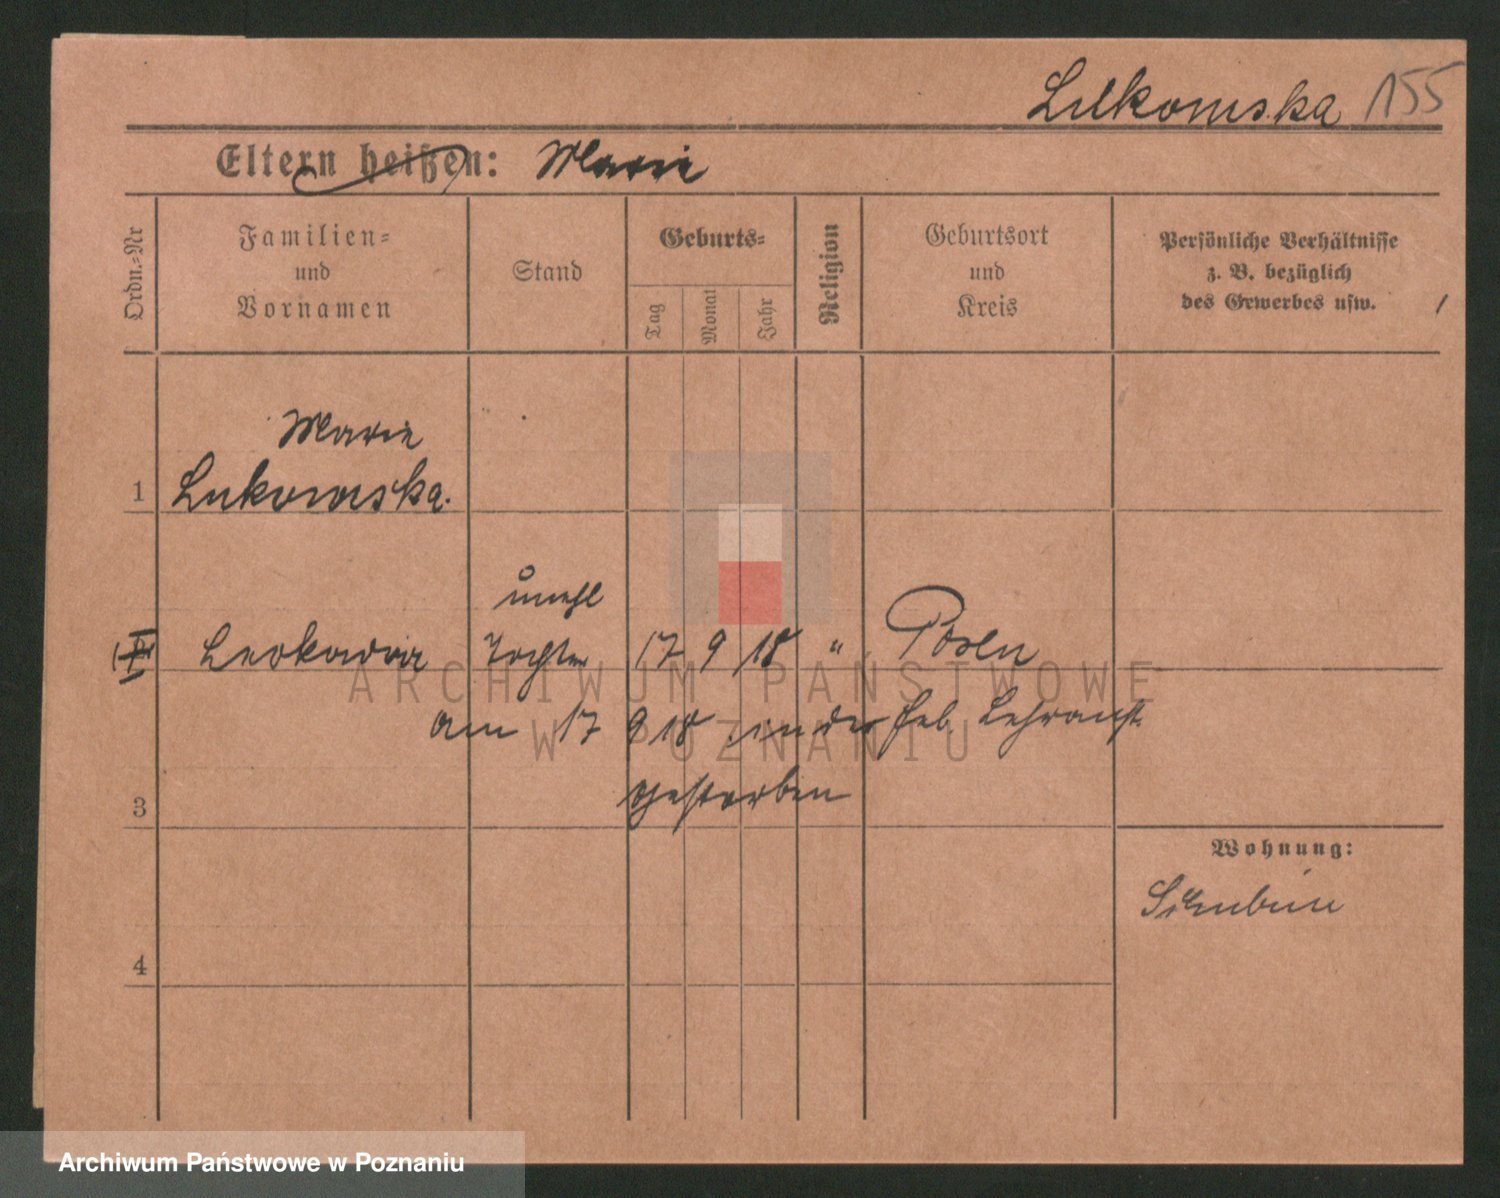 Lukowska 155
Eltern heißen: Marie
Ordn.-Nr
Familien-
und
Vornamen
Stand
Geburts-
Tag
Monat
Jahr
Religion
Geburtsort
und
Kreis
Persönliche Verhältnisse
z. B. bezüglich
des Gewerbes usw.
Marie
1 Lukowska.
unehl
Leokadia Tochter 17 9 18 " Posen
am 17 9 18 in der Heb. Lehranst.
gestorben
3
Wohnung:
4
ARCHIWUM PAŃSTWOWE
W POZNANIU
Archiwum Państwowe w Poznaniu